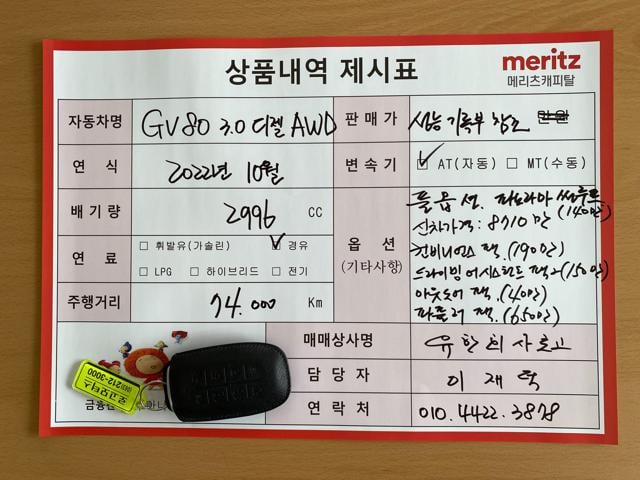 상품내역 제시표
meritz
메리츠캐피탈
자동차명 GV80 3.0 디젤 AWD
판매가 성능기록부 참조 만원
연 식 2022년 10월
변속기 ☑ AT(자동) □ MT(수동)
배기량 2996 CC
연 료 □ 휘발유(가솔린) ☑ 경유
□ LPG □ 하이브리드 □ 전기
주행거리 74.000 Km
옵 션
(기타사항)
풀옵션. 파노라마 썬루프
(140만)
신차가격: 8710만
컨비니언스 팩.(190만)
드라이빙어시스턴트 팩2(150만)
아웃도어 팩.(40만)
파퓰러 팩.(650만)
매매상사명
담 당 자
연 락 처 010.4422.3878
로고모터스
212-3000